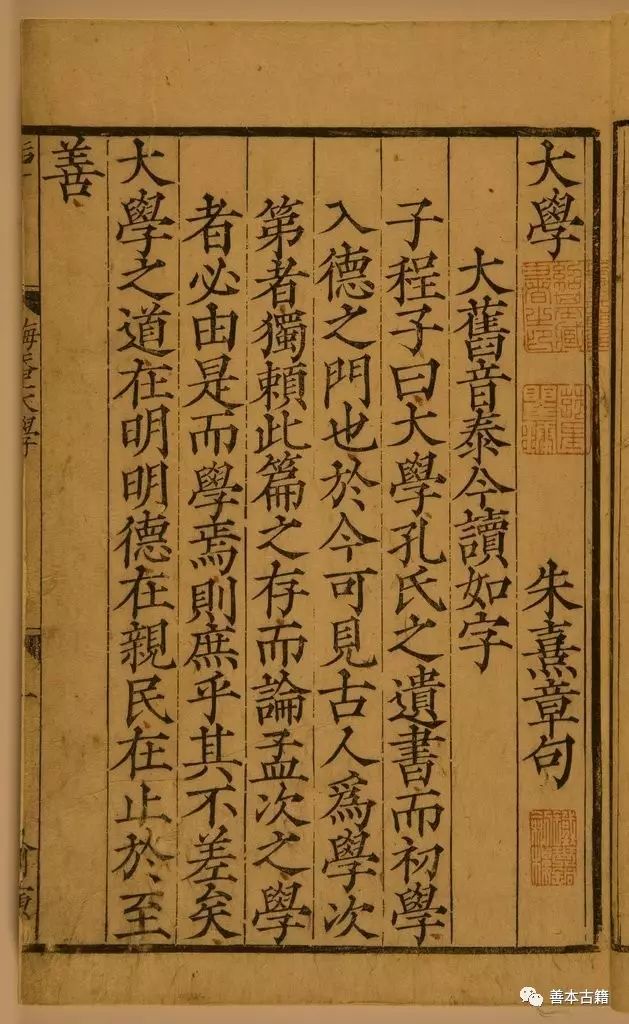 大學 朱熹章句
大舊音泰今讀如字
子程子曰大學孔氏之遺書而初學
入德之門也於今可見古人爲學次
第者獨賴此篇之存而論孟次之學
者必由是而學焉則庶乎其不差矣
大學之道在明明德在親民在止於至
善
晦庵大學
一
善本古籍